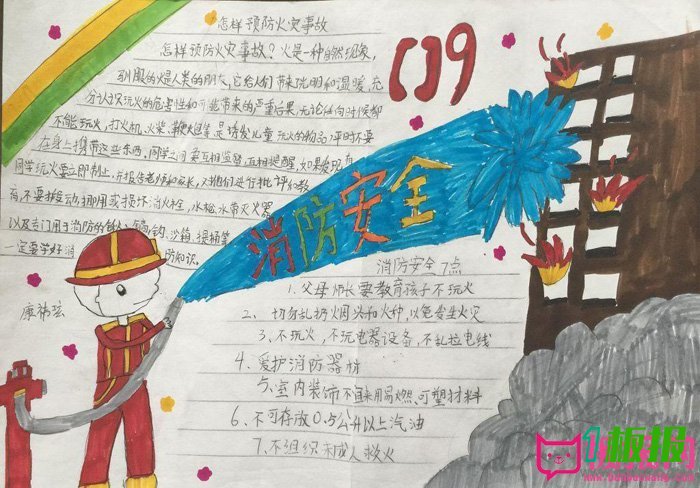 怎样预防火灾事故
怎样预防火灾事故？火是一种自然现象，
驯服的火是人类的朋友，它给人们带来光明和温暖，充
分认识玩火的危害性和可能带来的严重后果，无论任何时候都
不能玩火，打火机、火柴、鞭炮等是诱发儿童玩火的物品，平时不要
在身上携带这些东西，同学之间要互相监督，互相提醒，如果发现有
同学玩火要立即制止，并报告老师和家长，对他们进行批评和教
育，不要挪动、挪用或损坏消火栓，水枪、水带、灭火器
以及专门用于消防的
钩，沙箱，提桶等
一定要学好消防知识。
康
119
消防安全
消防安全7点
1. 父母师长要教育孩子不玩火
2、切勿乱扔烟头和火种，以免发生火灾
3、不玩火，不玩电器设备，不乱拉电线
4、爱护消防器材
5、室内装饰不宜采用易燃、可塑材料
6、不可存放0.5公升以上汽油
7、不组织未成人救火
板报